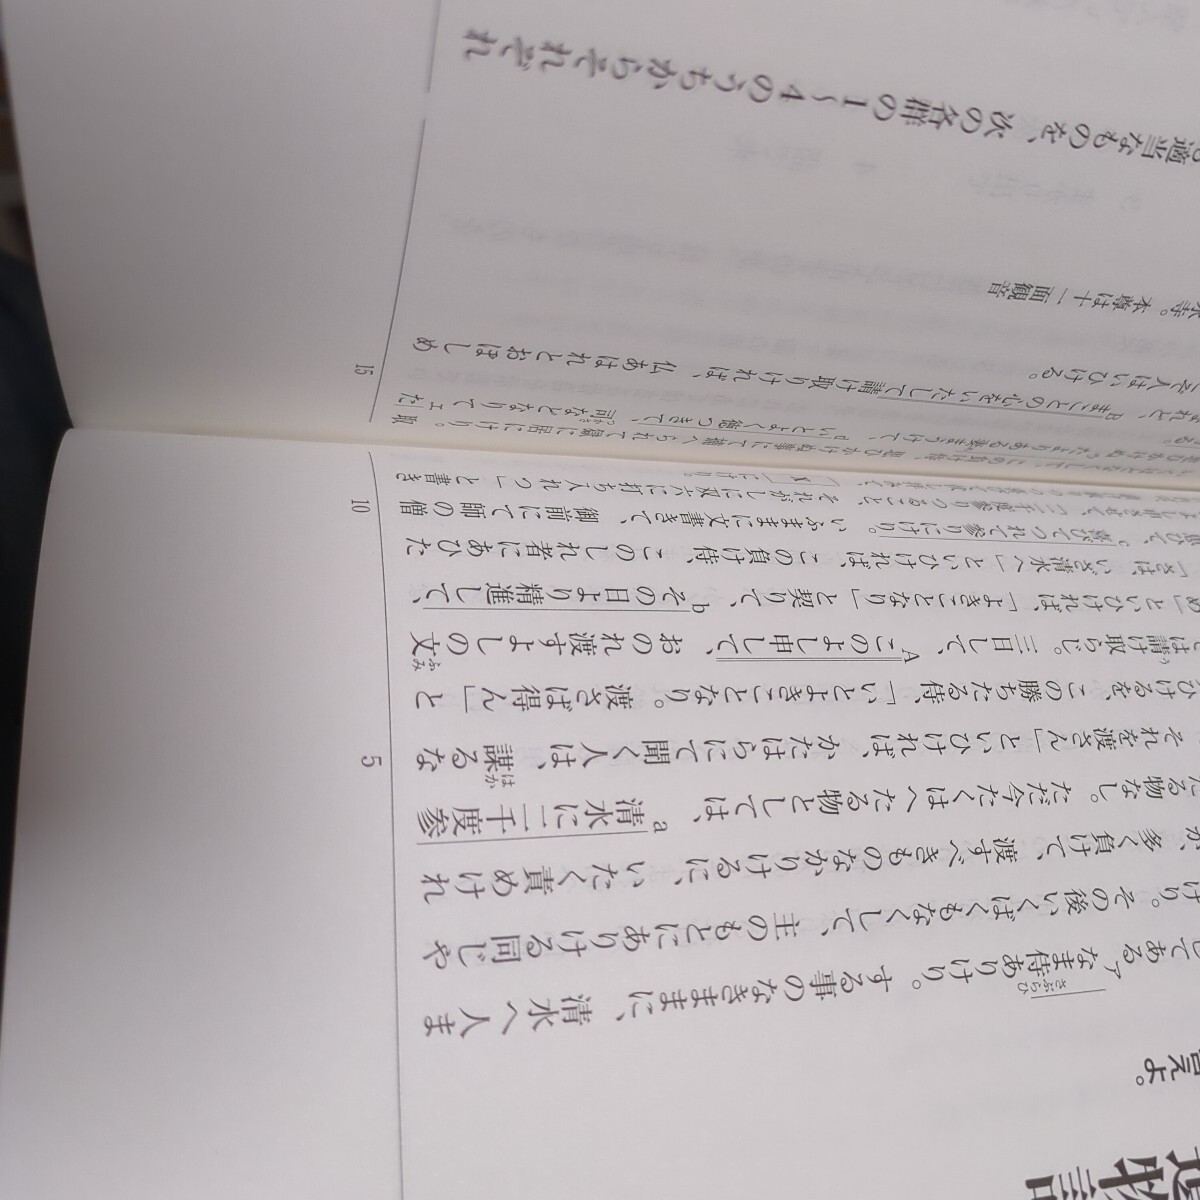 物語
答えよ。
してあるアなま侍ありけり。する事のなきままに、清水へ人ま
さぶらひ
けり。その後いくばくもなくして、主のもとにありける同じや
が、多く負けて、渡すべきものなかりけるに、いたく責めけれ
たる物なし。ただ今たくはへたる物としては、a清水に二千度参
5
それを渡さん」といひければ、かたはらにて聞く人は、謀るな
はか
ひけるを、この勝ちたる侍、「いとよきことなり。渡さば得ん」と
は請け取らじ。三日して、Aこのよし申して、おのれ渡すよしの文
う
ふみ
め」といひければ、「よきことなり」と契りて、bその日より精進して、
「さは、いざ清水へ」といひければ、この負け侍、このしれ者にあひた
思ひて、c喜びてつれて参りにけり。いふままに文書きて、御前にて師の僧
10
よし申させて、「二千度参りつること、それがしに双六に打ち入れつ」と書き
X にけり。
この負け侍、思ひかけぬ事にて捕へられて獄に居にけり。取
たよりある妻まうけて、dいとよく徳つきて、司などなりてエた
つかさ
されど、Bまことの心をいたして請け取りければ、仏あはれとおぼしめ
15
とぞ人はいひける。
水寺。本尊は十一面観音
適当なものを、次の各群の1～4のうちからそれぞれ